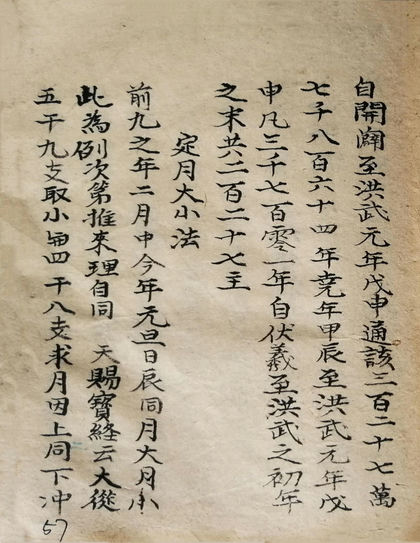 自開闢至洪武元年戊申通該三百二十七萬
七千八百六十四年堯年甲辰至洪武元年戊
申凡三千七百零一年自伏羲至洪武之初年
之末共二百二十七主
定月大小法
前九之年二月中今年元旦日辰同月大月小
此為例次第推來理自同 天賜寶経云大從
五干九支取小由四干八支求月因上同下冲
57